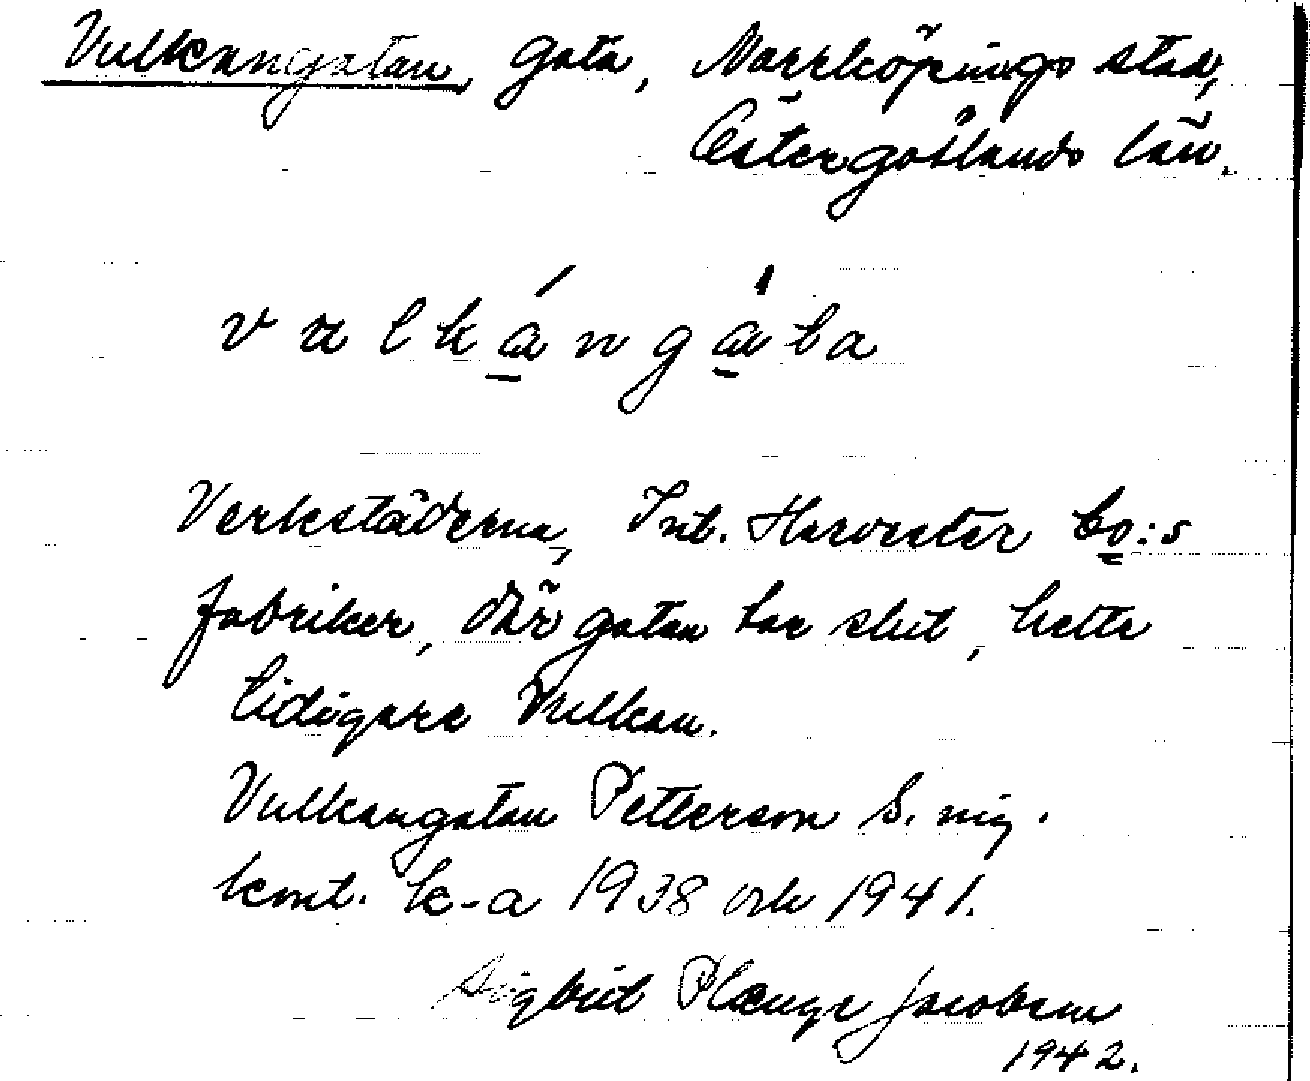 Vulkangatan, gata, Norrköpings stad,
Östergötlands län.
vulkángáta
Verkstäderna, Int. Harvester Co:s
fabriker, där gatan tar slut, hette
tidigare Vulkan.
Vulkangatan Petterson S.
kmt. k-a 1938 och 1941.
Sigbrit Plænge Jacobson
1942.